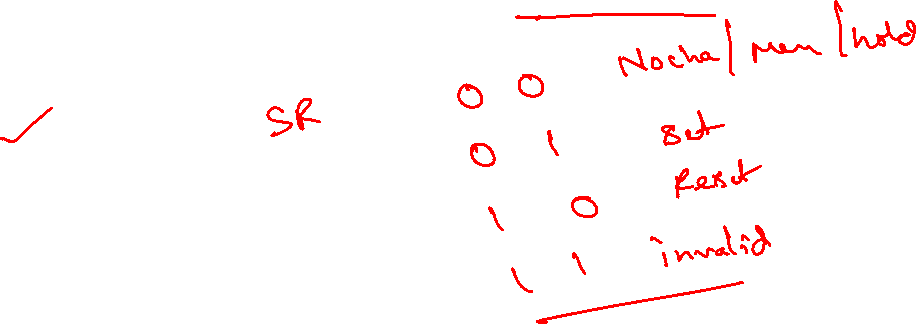 0 0 Nocha | Mem | hold
SR
0 1 Set
1 0 Reset
1 1 invalid